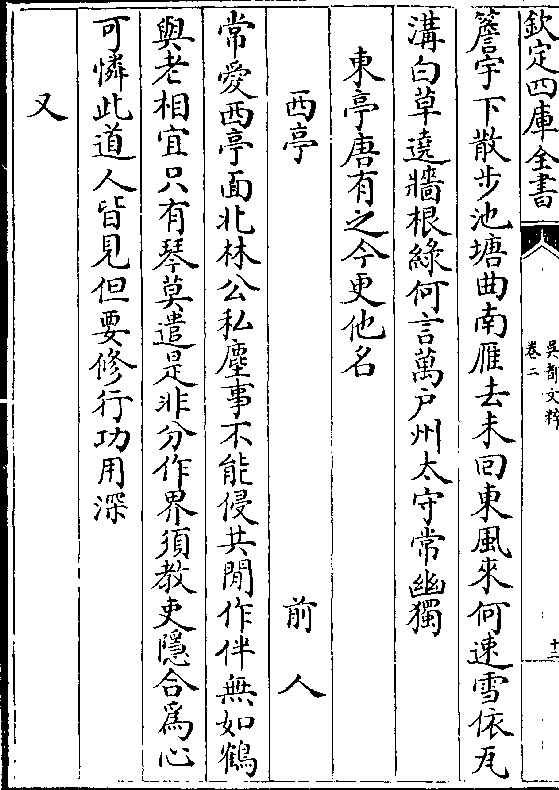 欽定四庫全書
吳都文粹
卷二
十二
簷宇下散步池塘曲南雁去未回東風來何速雪依瓦
溝白草遶牆根綠何言萬戶州太守常幽獨
東亭唐有之今更他名
西亭 前人
常愛西亭面北林公私塵事不能侵共閒作伴無如鶴
與老相宜只有琴莫遣是非分作界須教吏隱合為心
可憐此道人皆見但要修行功用深
又